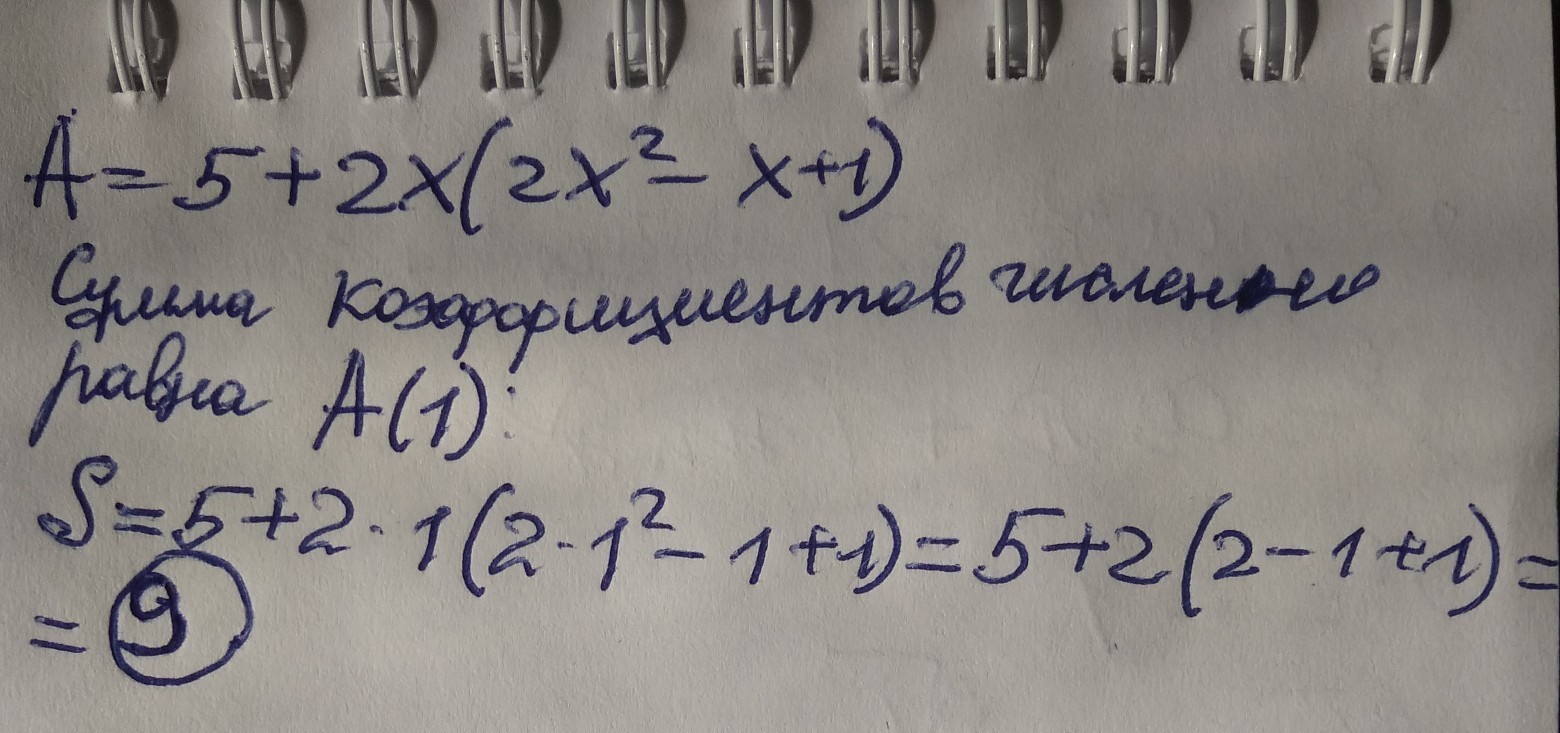 A = 5 + 2x(2x² - x + 1)
Сумма коэффициентов численно
равна A(1):
S = 5 + 2 · 1(2 · 1² - 1 + 1) = 5 + 2(2 - 1 + 1) =
= 9